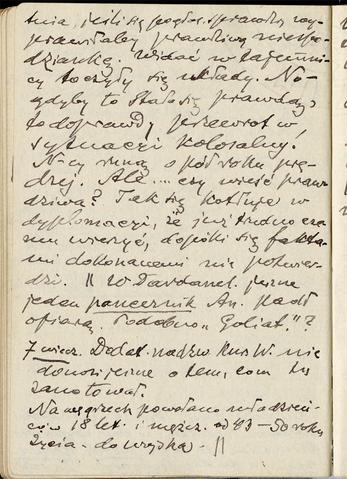 tnia, jeśli się pogłos. sprawdzą
prawdziwą niespo-
dziankę. Widać w tajemni-
cy toczyły się układy. No-
gdyby to stało się prawdą,
to doprawdy, przewrót w
sytuacji kolosalny.
N-cy runą o pół roku prę-
dzej. Ale... czy wieść praw-
dziwa? Tak się kotłuje w
dyplomacji, że już trudno cze-
mu wierzyć, dopóki się fakta-
mi dokonanemi nie potwier-
dzi. || W Dardanel. jeszcze
jeden pancernik An. padł
ofiarą. Podobno „Goliat."?
7 wiecz. Dodat. nadzw. Kur. W. nic
donosi o tem, com tu
zanotował.
Na węgrzech powołano młodzień-
ców 18 let. i mężcz. od 43–50 roku
życia do wojska. ||